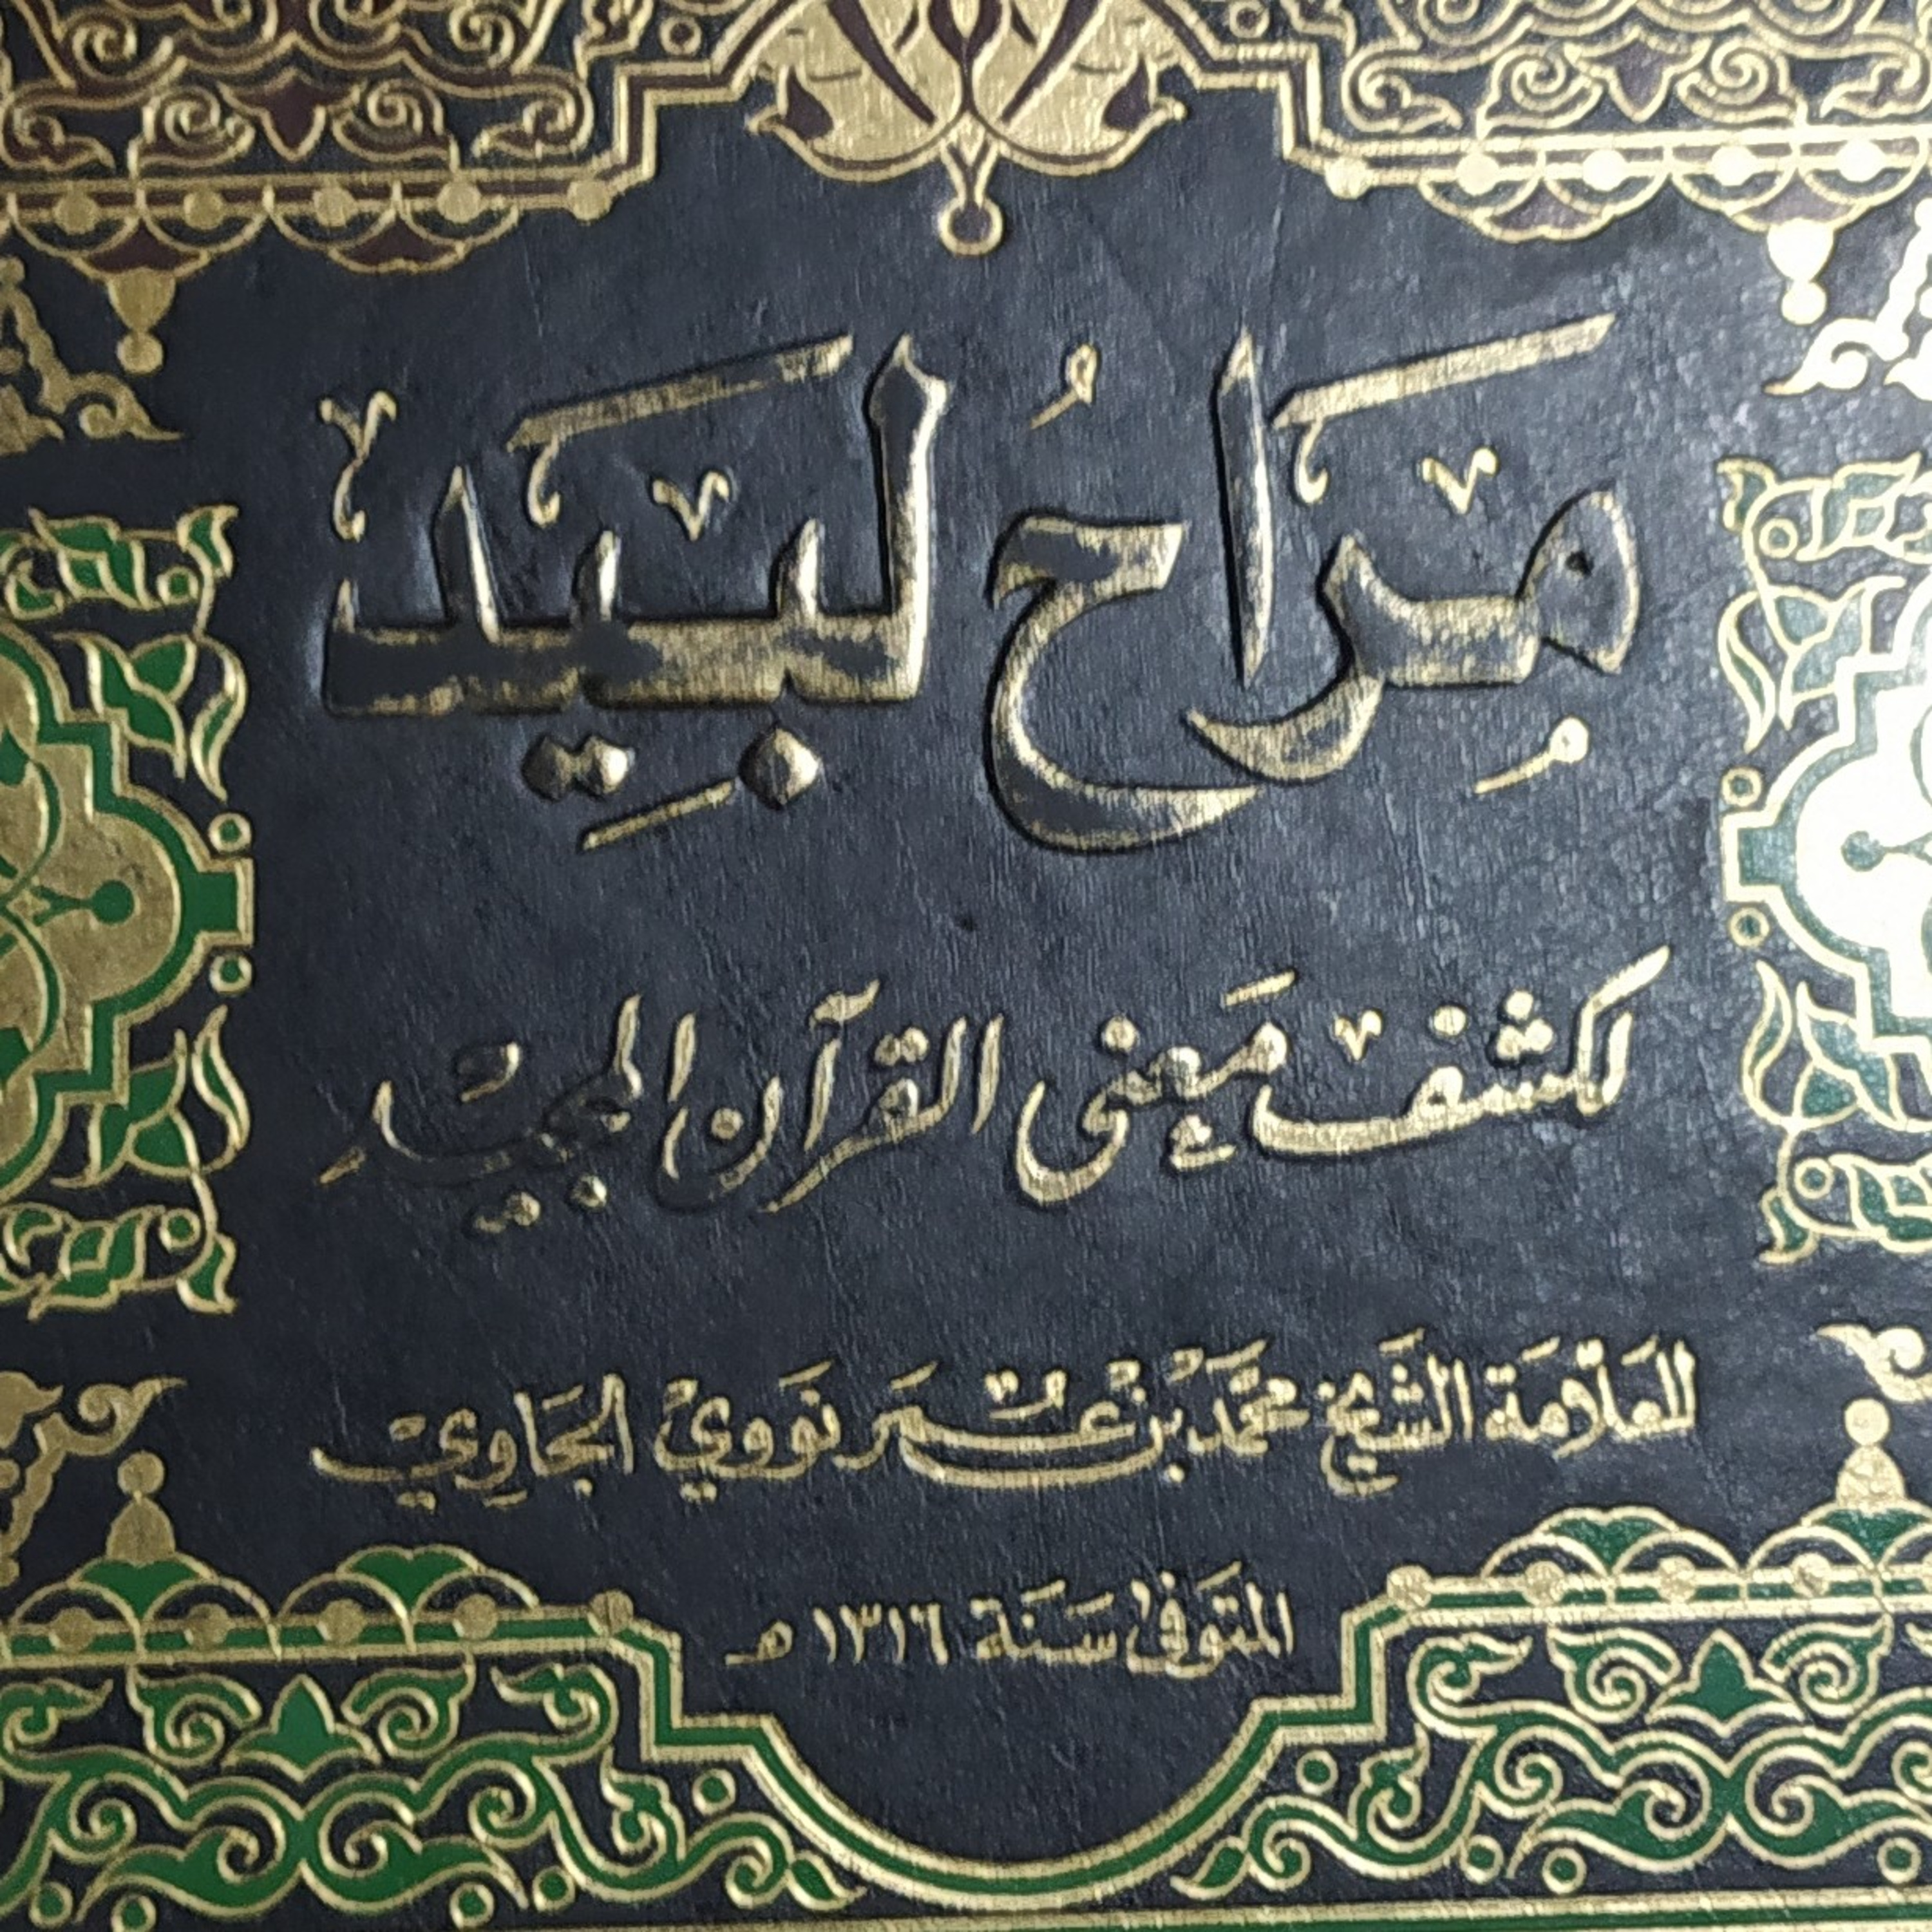 مِرَاحُ لَبِيد
لكشف مَعنى القرآن المجيدِ
للعَلّامَة الشَيخ محمَّد بنُ عُمَر نوَويُ الجَاوِيّ
المتوَفى سَنَة ١٣١٦ هـ